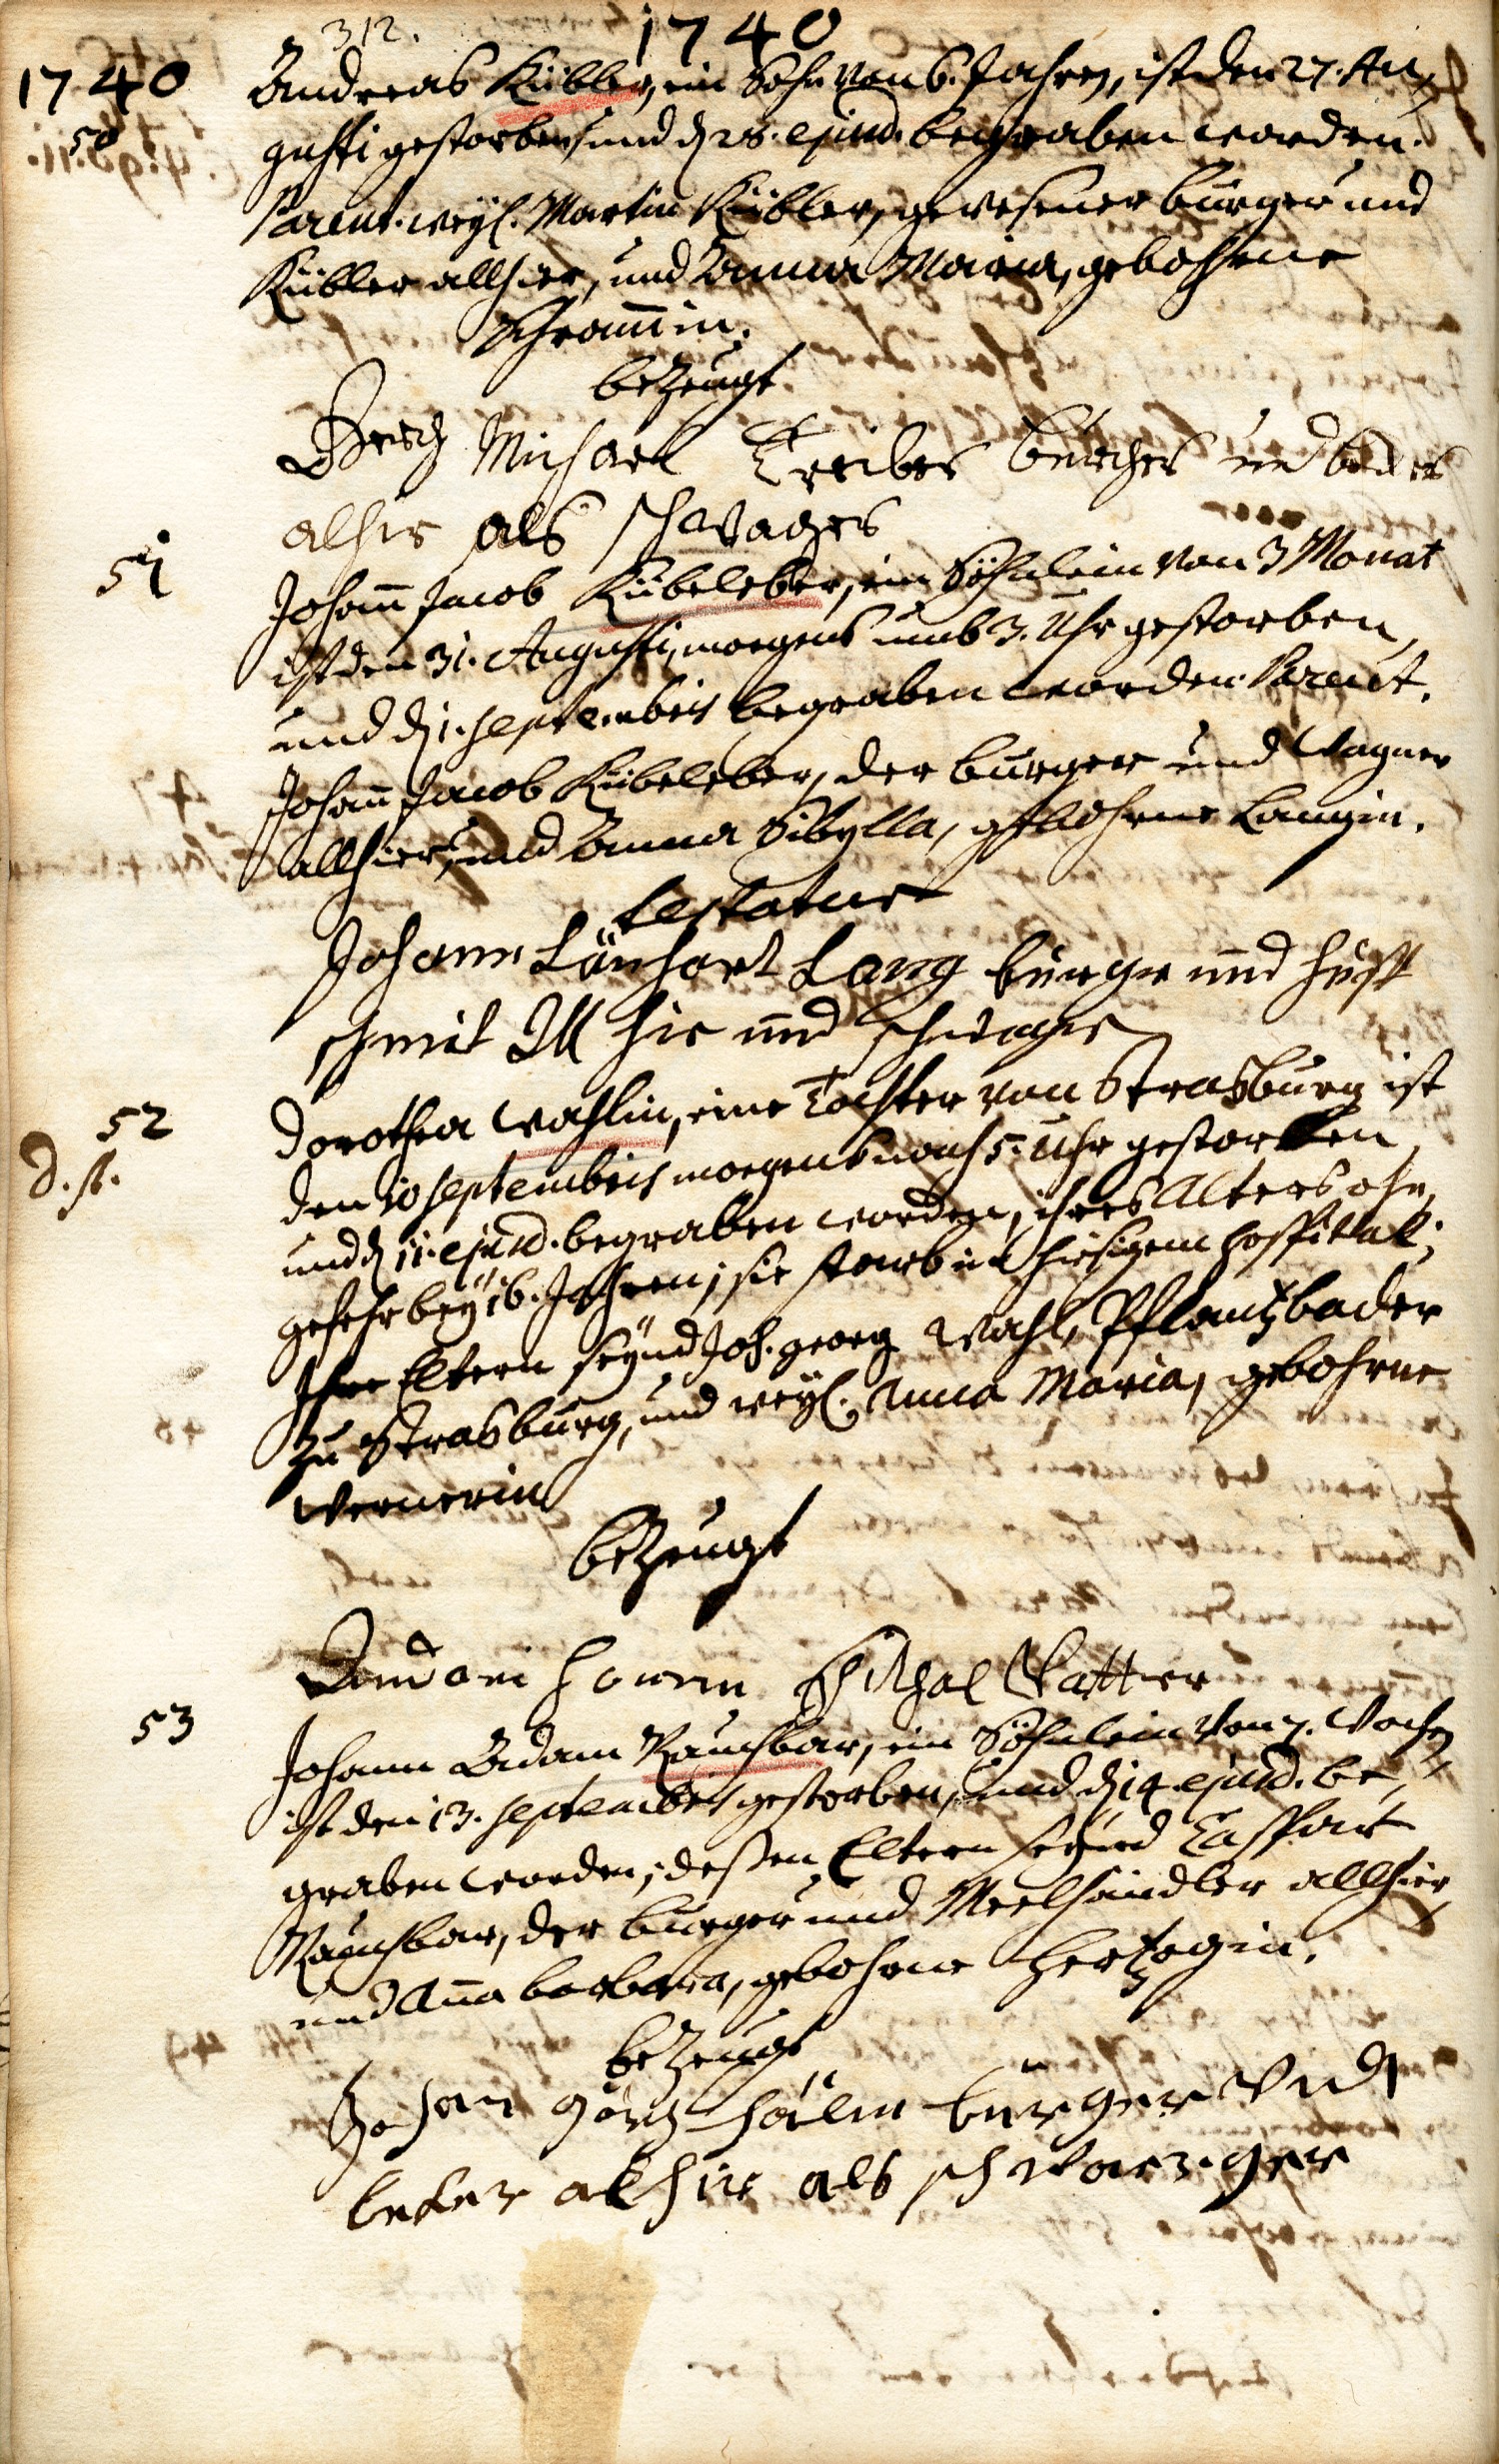 312.
1740
1740
50
Andreas Kübler, ein Sohn von 6. Jahren, ist den 27. Au-
gusti gestorben, und d. 28. ejusd. begraben worden.
Parent. weyl. Martin Kübler, gewesener burger und
Kübler allhier, und Anna Maria, gebohrne
Schram̄in.
bezeugt
Michael burger und
alhir als schwager
51
Joham̄ Jacob Kübeleber, ein Söhnlein von 3 Monat
ist den 31. Augusti, morgens umb 3. Uhr gestorben,
und d. 1. septembris begraben worden. Parent.
Joham̄ Jacob Kübeleber, der burger und Wagner
allhier, und Anna Sibylla, gebohrne Langin.
testatur
Johann Länhart Lang burger und huff
schmit All hir und schwager
52
d. st.
Dorothea Wahlin, eine Tochter von Strasburg ist
den 10 septembris morgens nach 5. Uhr gestorben
und d. 11. ejusd. begraben worden, ihres Alters ohn-
gefehr bey 16. Jahren; sie starb im hiesigem hospital;
Ihre Eltern seynd Joh. georg Wahl, Pflantzbader
zu Strasburg, und weyl. Anna Maria, gebohrne
Wernerin
bezeugt
hann Vatter
53
Johann Adam Rauschbar, ein Söhnlein von 7. Wochen
ist den 13. septembris gestorben, und d. 14. ejusd. be-
graben worden; deßen Eltern seynd Caspar
Rauschbar, der burger und Meelhändler allhier
und Anna barbara, gebohrne Hertzogin.
bezeugt
Johan görg burger Vndt
beker alhir als